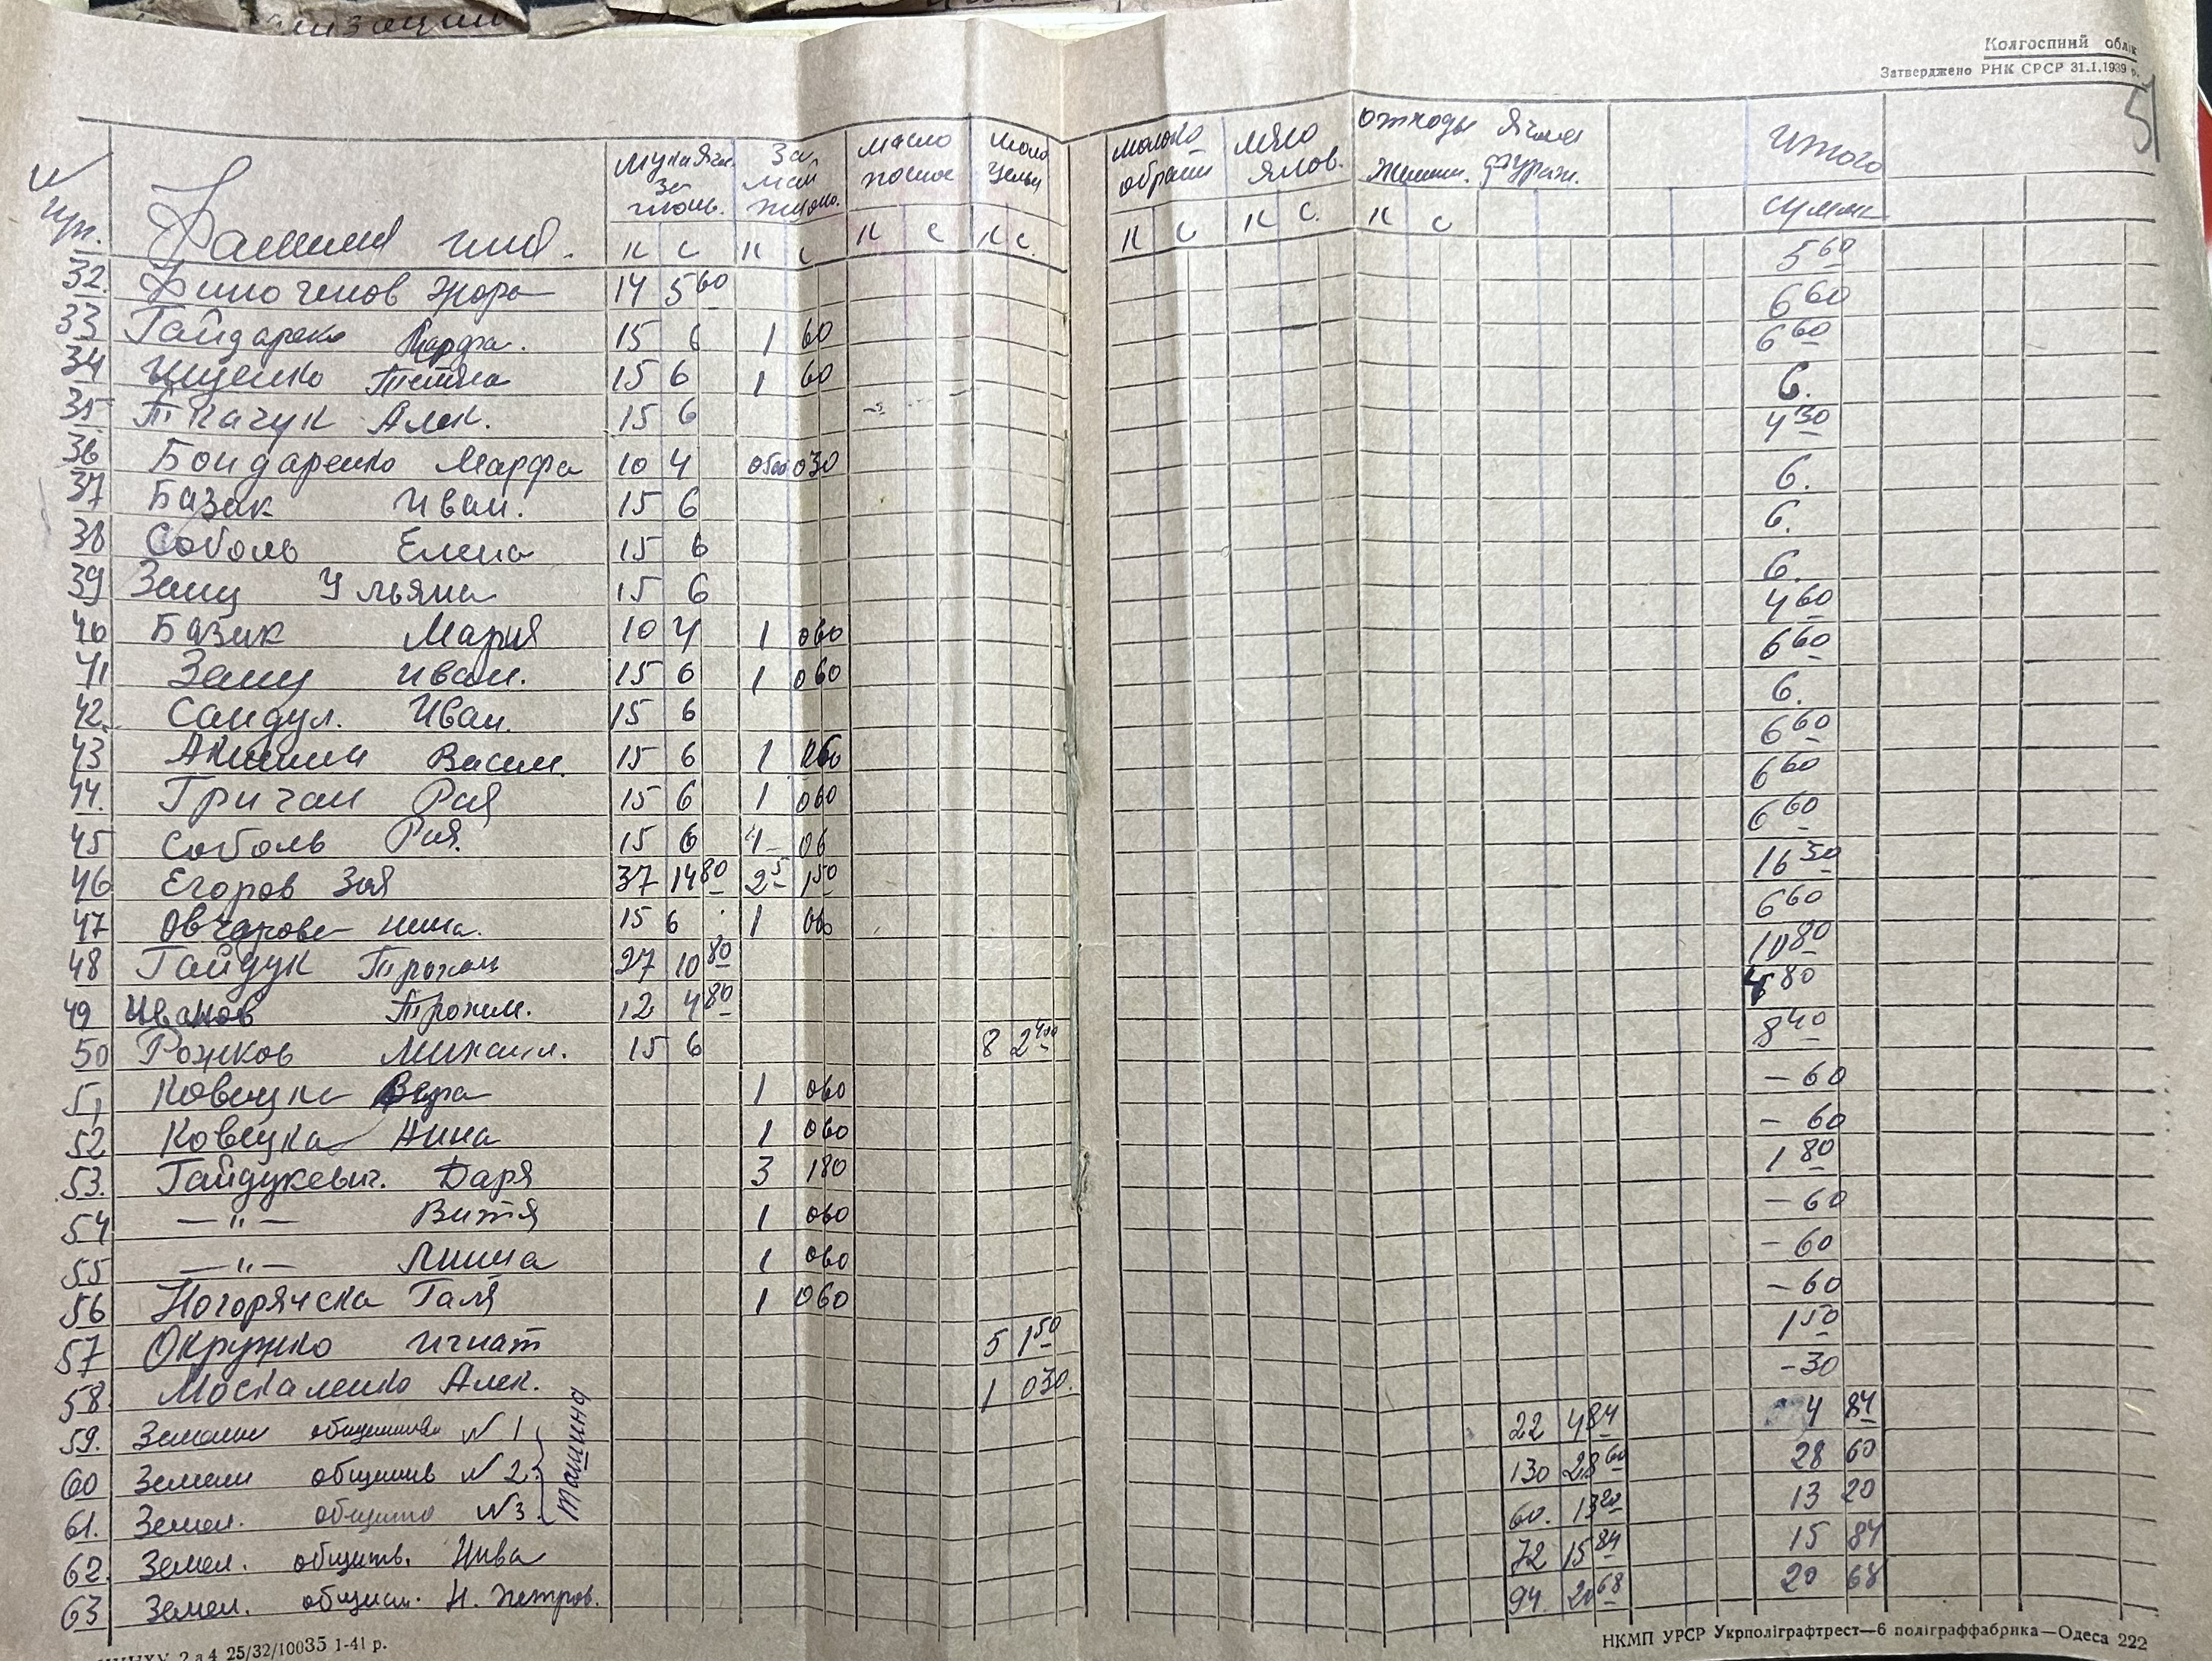 Колгоспний облік
Затверджено РНК СРСР 31.1.1939 р.
51
Фамилия имя.
Мука Ячм. за площ.
За май
масло постное
моло цельн
молоко обрат
мясо Ялов.
отходы Ячмен фураж.
Итого
сумм
к с к с к с к с. к с к с. к с
32. Жора 14 5 60 5 60
33 Гайдаренко Марфа. 15 6 1 60 6 60
34 Ищенко 15 6 1 60 6 60
35 Ткачук Алек. 15 6 6.
36 Бондаренко Марфа 10 4 0500 030 4 30
37 Базак Иван. 15 6 6.
38 Соболь Елена 15 6 6.
39 Заиц Ульяна 15 6 6.
40 Базак Мария 10 4 1 060 4 60
41 Заиц Иван. 15 6 1 060 6 60
42. Сандул. Иван. 15 6 6.
43 Васил. 15 6 1 060 6 60
44. Гричан Рая 15 6 1 060 6 60
45 Соболь Рая. 15 6 1 06 6 60
46 Егоров Зоя 37 14 80 2 5 1 50 16 30
47 Овчарова нина. 15 6 1 060 6 60
48 Гайдук Трохим 27 10 80 10 80
49 Иванов Трохим. 12 4 80 4 80
50 Рожков Михаил. 15 6 8 2 400 8 40
51 Вера 1 060 – 60
52 Ковецка Нина 1 060 – 60
53. Гайдукевич. Даря 3 180 1 80
54 –"– Витя 1 060 – 60
55 –"– 1 060 – 60
56 Ногорячска Галя 1 060 – 60
57 Окружко Игнат 5 1 50 1 50
58. Москаленко Алек. 1 030. – 30
59. N 1 22 4 84 4 84
60 N 2 130 28 60 28 60
61. Земел. N 3 60. 13 20 13 20
Ташина
62. Земел. обществ. Нива 72 15 84 15 84
63 Земел. Н. Петров. 94. 20 68 20 68
2 а 4 25/32/10035 1-41 р.
НКМП УРСР Укрполіграфтрест—6 поліграффабрика—Одеса 222